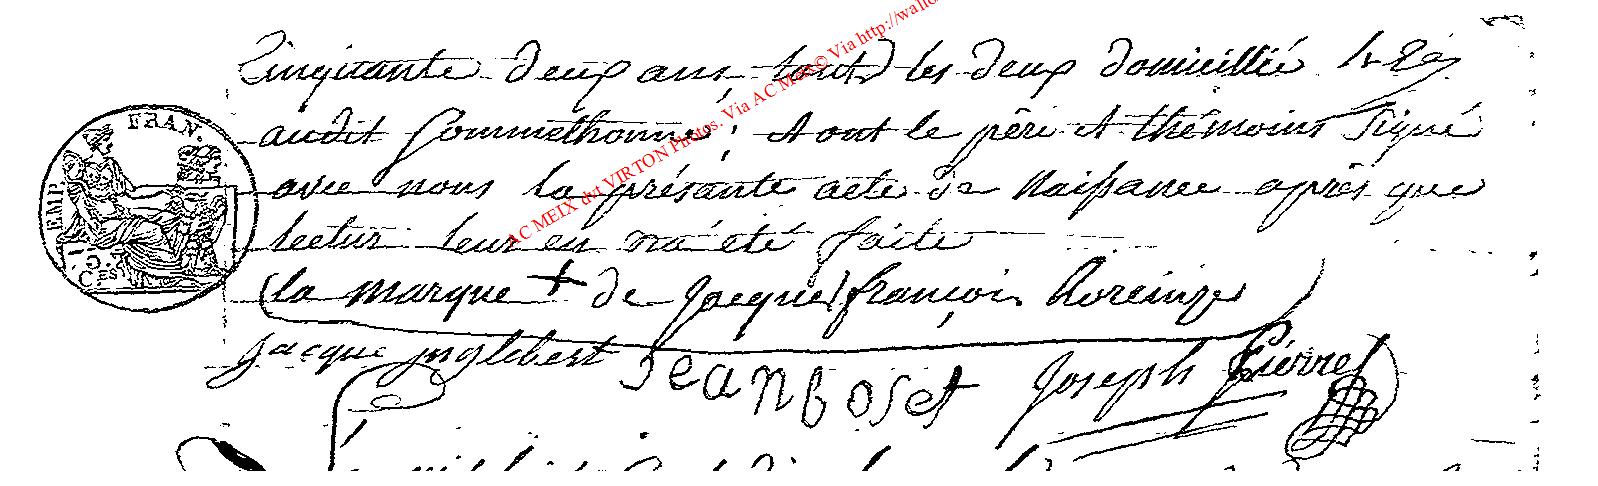 Cinquante deux ans, tout les deux domicillié
audit Sommethonne; et ont le père et thémoins signé
avec nous la présante acte de naissance après que
lectur leur en na été faite
la marque + de Jacque françois
Jacque inglebert Jean boset Joseph Piérret
EMP. FRAN.
AC MEIX dvt VIRTON Photos. Via AC Meix© Via http://wallo